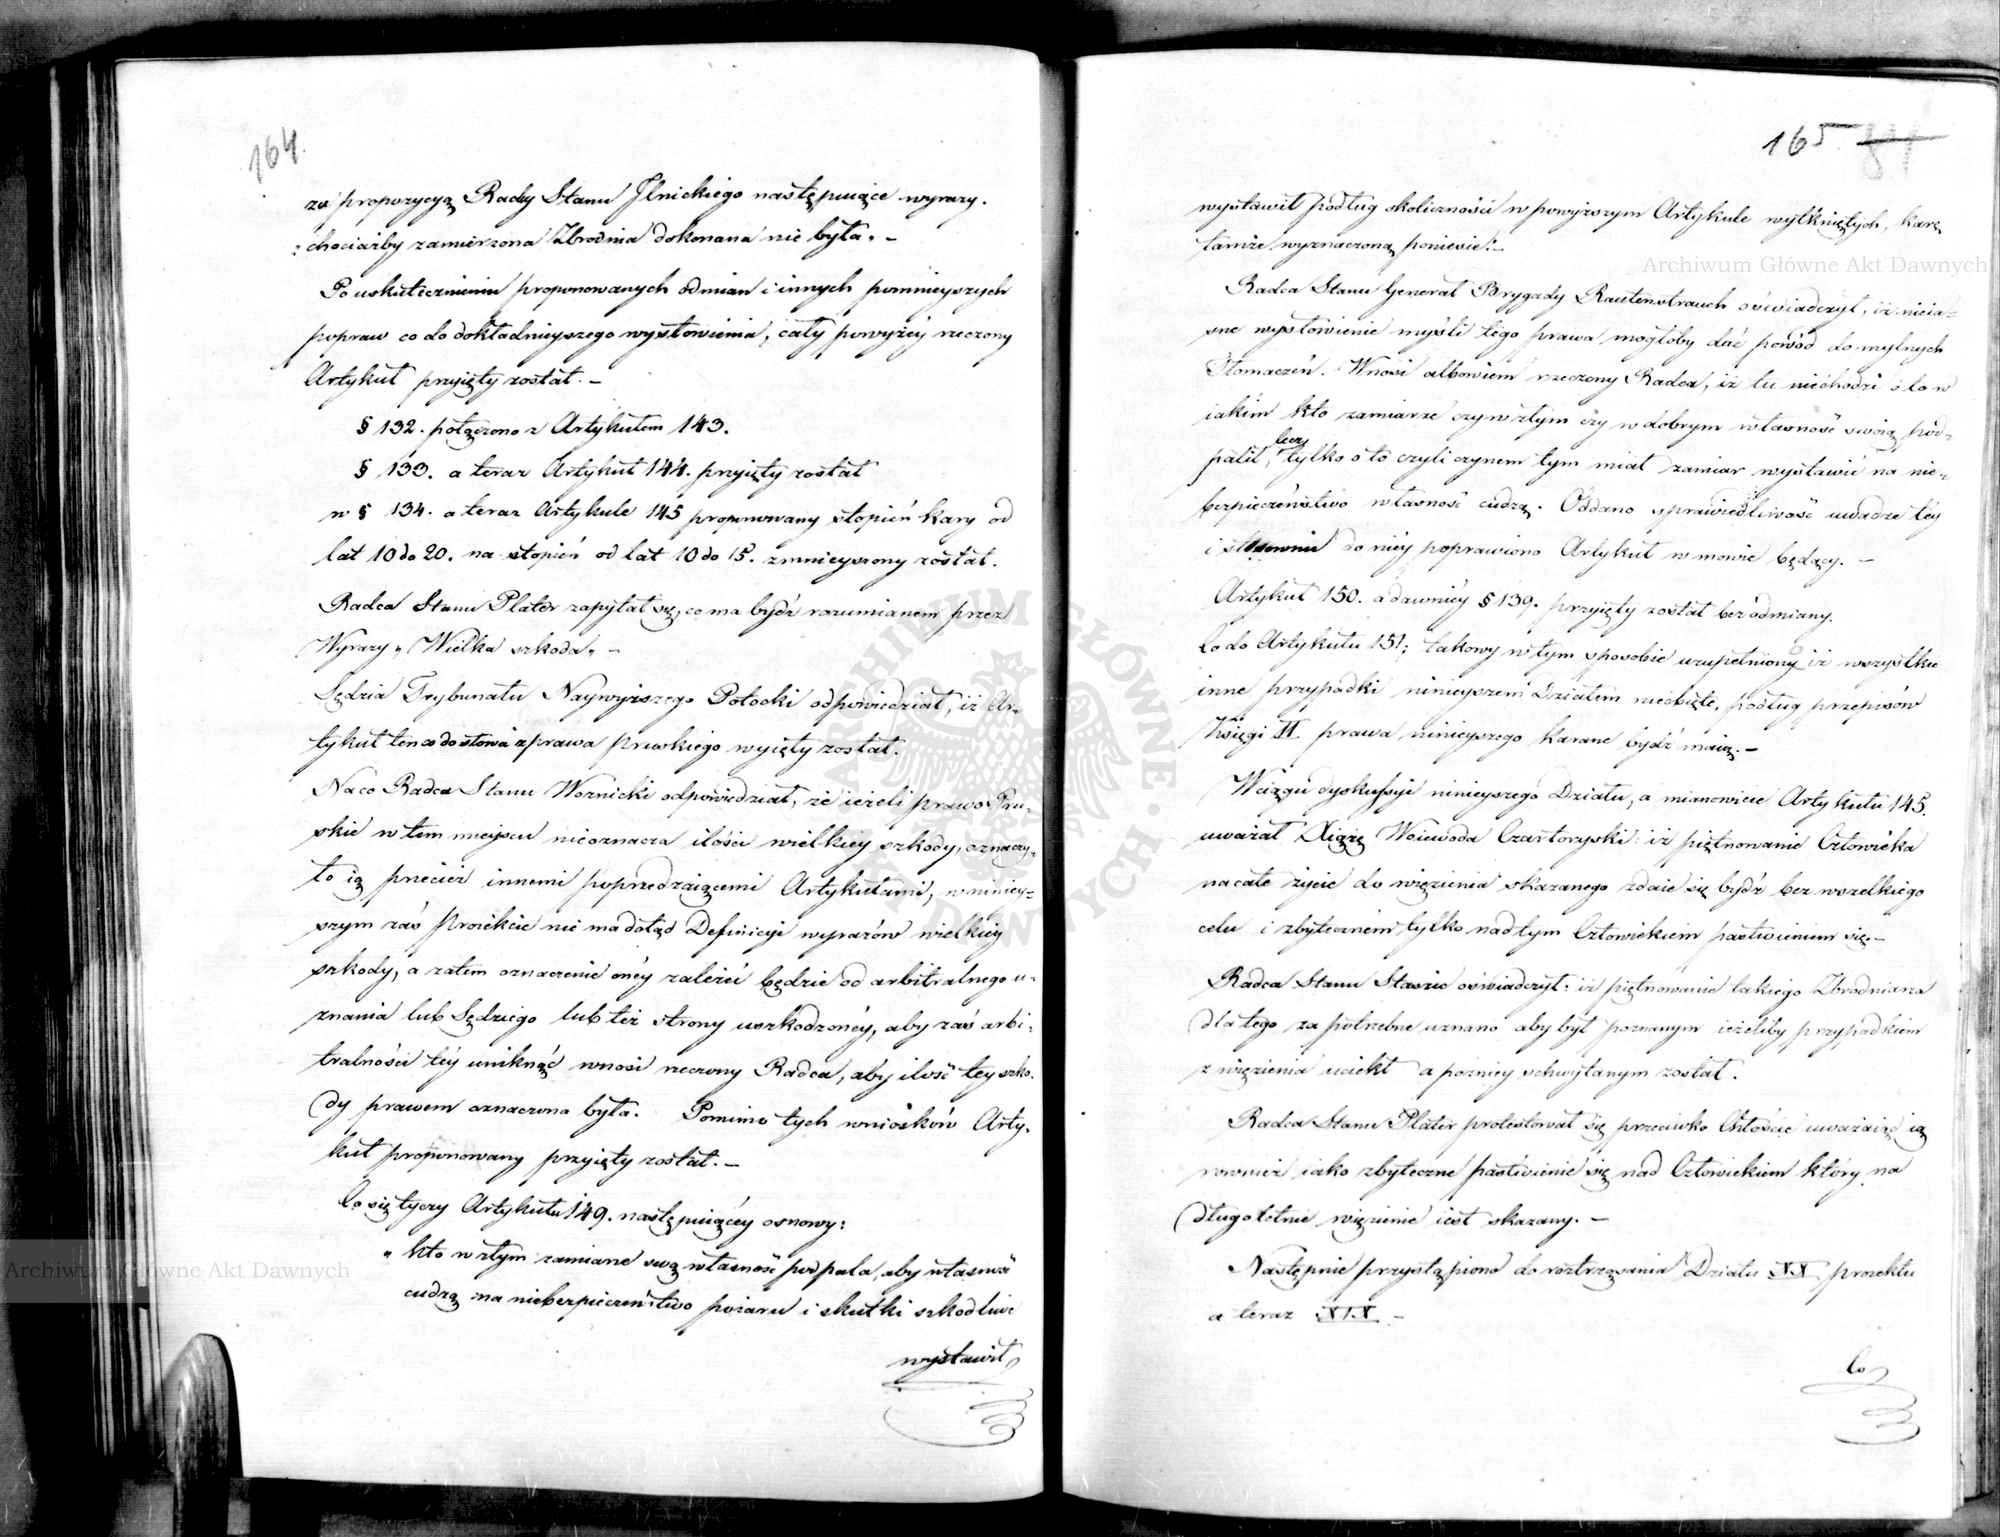 164.
za propozycyą Radcy Stanu Ilnickiego następuiące wyrazy.
: chociażby zamierzona Zbrodnia dokonana nie była. –
Po uskutecznieniu proponowanych odmian i innych pomnieyszych
popraw co do dokładnieyszego wysłowienia, cały powyżéy rzeczony
Artykuł przyięty został. –
§ 132. połączono z Artykułem 143.
§ 133. a teraz Artykuł 144. przyięty został
w § 134. a teraz Artykule 145 proponowany stopień kary od
lat 10 do 20. na stopień od lat 10 do 15. zmnieyszony został.
Radca Stanu Plater zapytał się, co ma bydź rozumianem przez
Wyrazy „ Wielka szkoda„ –
Sędzia Trybunału Naywyższego Potocki odpowiedział, iż Ar-
tykuł ten co do słowa z prawa Pruskiego wyięty został.
Na co Radca Stanu Woznicki odpowiedział, że ieżeli prawo Pru-
skie w tem mieyscu nieoznacza ilości wielkiey szkody, oznaczy-
ło ią przecież innemi poprzedzaiącemi Artykułami, w niniey-
szym zaś Proiekcie nie ma dotąd Definicyi wyrazów wielkiey
szkody, a zatem oznaczenie onéy zależeć będzie od arbitralnego u-
znania lub Sędziego lub też strony uszkodzonéy, aby zaś arbi-
tralności téy uniknąć wnosi rzeczony Radca, aby ilość tey szko-
dy prawem oznaczona była. Pomimo tych wniosków Arty-
kuł proponowany przyięty został. –
Co się tyczy Artykułu 149. następuiącéy osnowy:
„ kto w złym zamiarze swą własność podpala, aby własność
cudzą na niebezpieczeństwo pożaru i skutki szkodliwe
wystawił
165. 84
wystawił podług okoliczności w powyższym Artykule wytkniętych, karę
tamże wyznaczoną poniesie: –
Radca Stanu Generał Brygady Rautenstrauch oświadczył, iż nieia-
sne wysłowienie myśli tego prawa mogłoby dać powód do mylnych
Tłomaczeń. Wnosi albowiem rzeczony Radca, iż tu niechodzi o to w
iakim kto zamiarze czy w złym czy w dobrym własność swoią pod-
palił, lecz tylko o to czyli czynem tym miał zamiar wystawić na nie-
bezpieczeństwo własność cudzą. Oddano sprawiedliwość uwadze téy
i stosownie do niéy poprawiono Artykuł w mowie będący. –
Artykuł 150. a dawniéy § 139. przyięty został bez odmiany.
Co do Artykułu 151; takowy w tym sposobie uzupełniony iż wszystkie
inne przypadki ninieyszem Działem nieobięte, podług przepisów
Księgi II prawa ninieyszego karane bydź maią. –
W ciągu dyskussyi ninieyszego Działu, a mianowicie Artykułu 145.
uważał Xiążę Woiewoda Czartoryski: iż piętnowanie Człowieka
na całe życie do więzienia skazanego zdaie się bydź bez wszelkiego
celu i zbytecznem tylko nad tym Człowiekiem pastwieniem się. –
Radca Stanu Staszic oświadczył: iż piętnowanie takiego Zbrodniarza
dla tego za potrzebne uznano aby był poznanym ieżeliby przypadkiem
z więzienia uciekł a pozniey schwytanym został.
Radca Stanu Plater protestował się przeciwko Chłoście uważaiąc ią
rownież iako zbyteczne pastwienie się nad Człowiekiem który na
długoletnie więzienie iest skazany. –
Następnie przystąpiono do roztrząsania Działu XX proiektu
a teraz XIX –
Co
Archiwum Główne Akt Dawnych
Archiwum Główne Akt Dawnych
ARCHIWUM GŁÓWNE AKT DAWNYCH